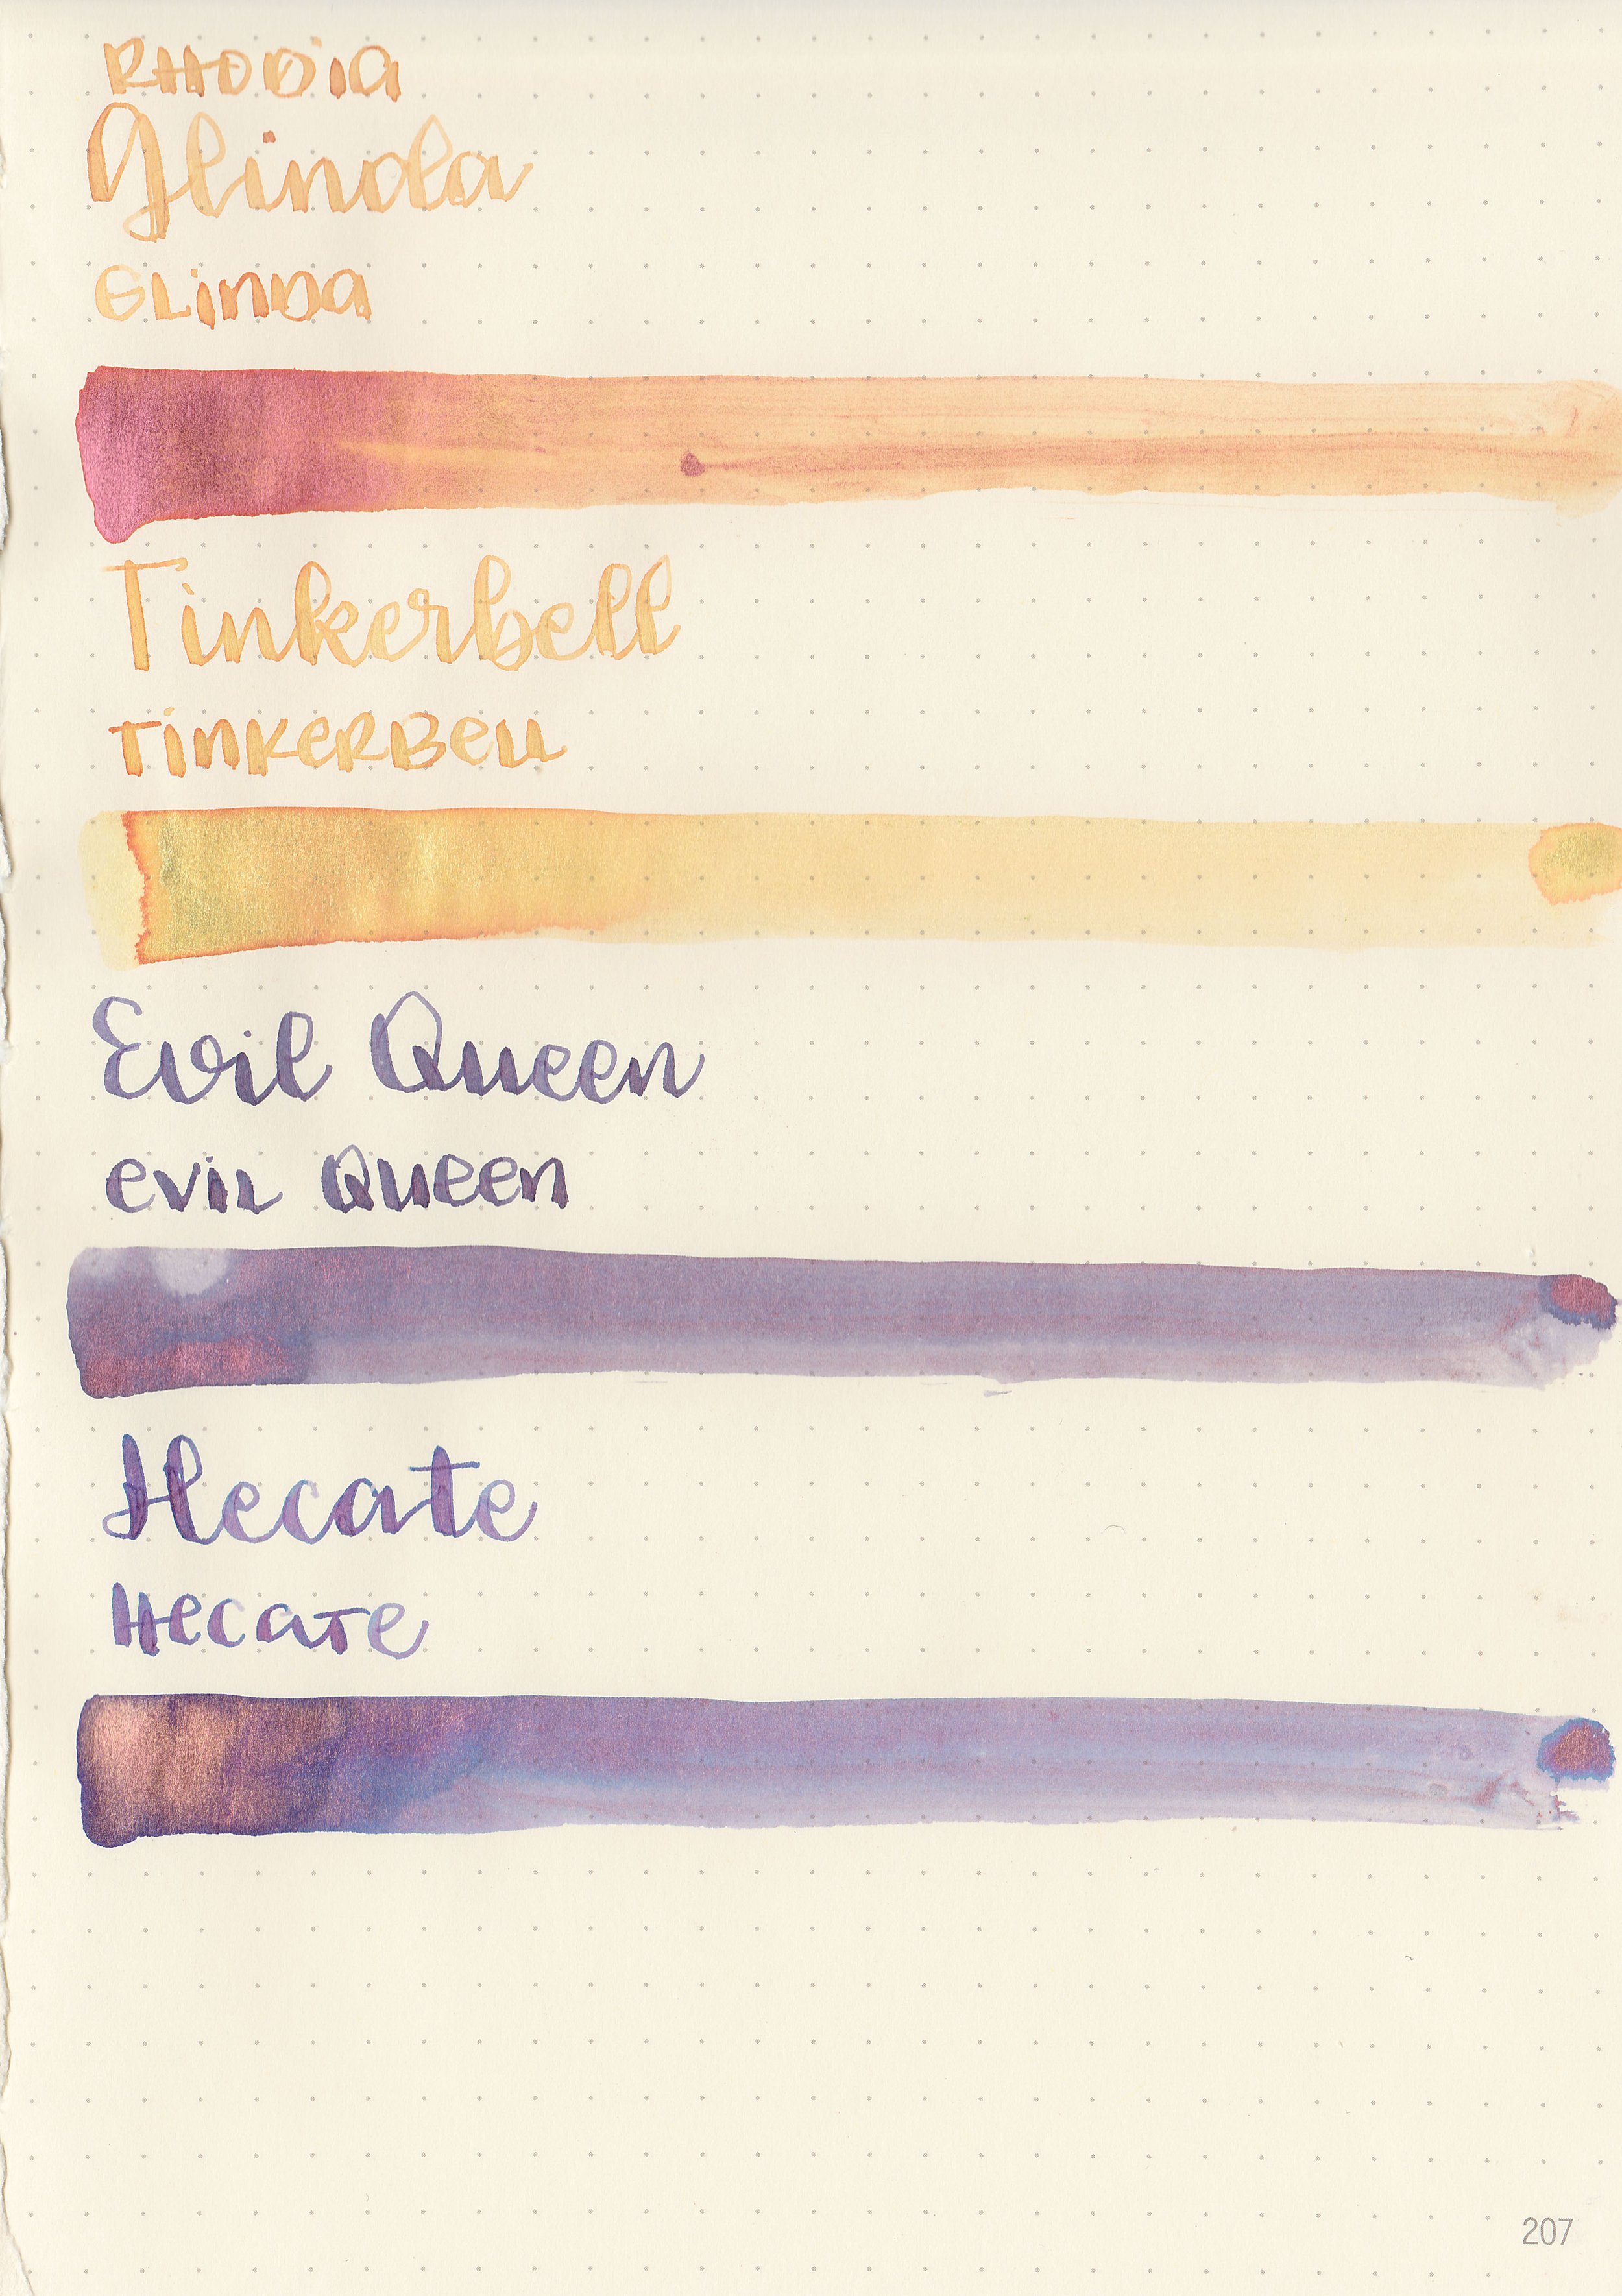 RHODIA
Glinda
GLINDA
Tinkerbell
TINKERBELL
Evil Queen
EVIL QUEEN
Hecate
HECATE
207